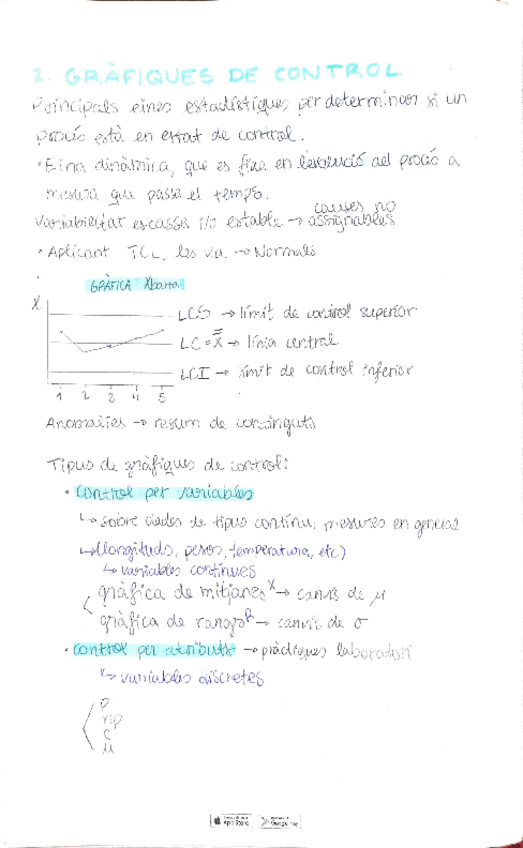 2. GRÀFIQUES DE CONTROL
Principals eines estadístiques per determinar si un
procés està en estat de control.
· Eina dinàmica, que es fixa en l'evolució del procés a
mesura que passa el temps.
causes no
variabilitat escassa i/o estable → assignables
· Aplicant TCL, les v.a. → Normals
GRÀFICA Xbarra
X
LCS → límit de control superior
LC = X̿ → línia central
LCI → límit de control inferior
1 2 3 4 5
Anomalies → resum de continguts
Tipus de gràfiques de control:
· control per variables
↳ sobre dades de tipus continu, mesures en general
↳ (longituds, pesos, temperatura, etc)
↳ variables contínues
gràfica de mitjanes X → canvis de μ
gràfica de rangs R → canvis de σ
· control per atributs → pràctiques laboratori
↳ variables discretes
p
np
c
u
App Store
Google Play